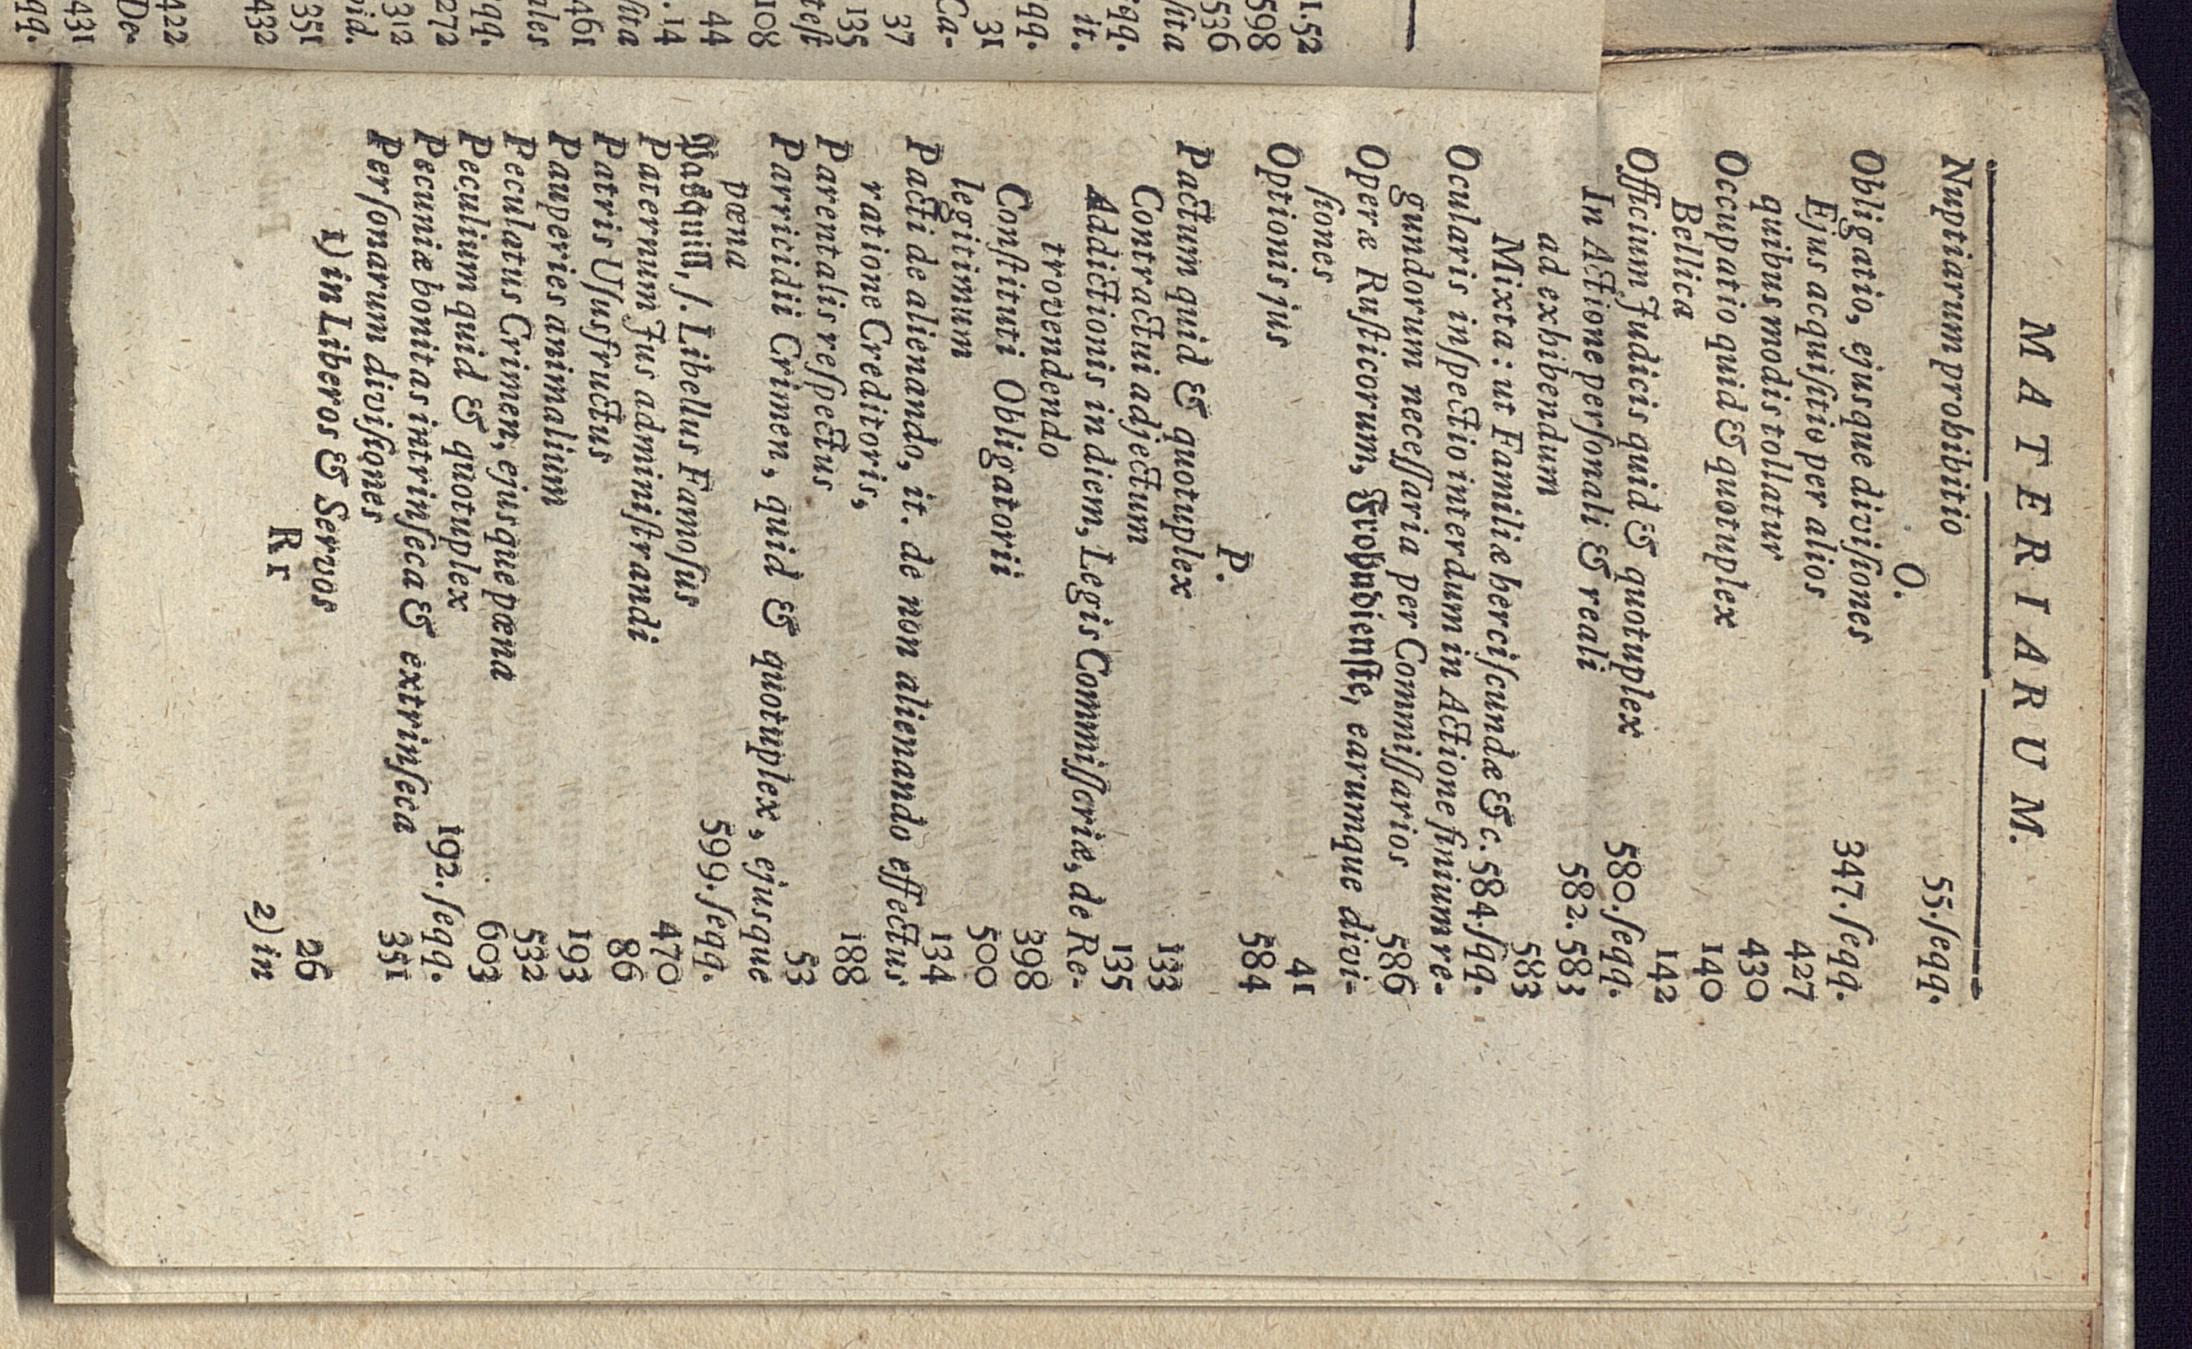 1.52
598
536
ſita
qq.
it.
qq.
31
Ca-
37
135
teſt
108
44
. 14
ſita
461
ales
qq.
272
312
id.
351
432
422
De-
431
qq.
MATERIARUM.
Nuptiarum prohibitio 55.ſeqq.
O.
Obligatio, ejusque diviſiones 347. ſeqq.
Ejus acquiſitio per alios 427
quibus modis tollatur 430
Occupatio quid & quotuplex 140
Bellica 142
Officium Judicis quid & quotuplex 580.ſeqq.
In Actione perſonali & reali 582. 583
ad exhibendum 583
Mixta: ut Familiæ herciſcundæ &c. 584.ſqq.
Ocularis inſpectio interdum in Actione finium re-
gundorum neceſſaria per Commiſſarios 586
Operæ Ruſticorum, Frohndienſte, earumque divi-
ſiones 41
Optionis jus 584
P.
Pactum quid & quotuplex 133
Contractui adjectum 135
Addictionis in diem, Legis Commiſſoriæ, de Re-
trovendendo 398
Conſtituti Obligatorii 500
legitimum 134
Pacti de alienando, it. de non alienando effectus
ratione Creditoris, 188
Parentalis reſpectus 53
Parricidii Crimen, quid & quotuplex, ejusque
pœna 599. ſeqq.
Pasquill, ſ. Libellus Famoſus 470
Paternum Jus adminiſtrandi 86
Patris Uſusfructus 193
Pauperies animalium 532
Peculatus Crimen, ejusque pœna 603
Peculium quid & quotuplex 192. ſeqq.
Pecuniæ bonitas intrinſeca & extrinſeca 351
Perſonarum diviſiones
1) in Liberos & Servos 26
Rr 2) in